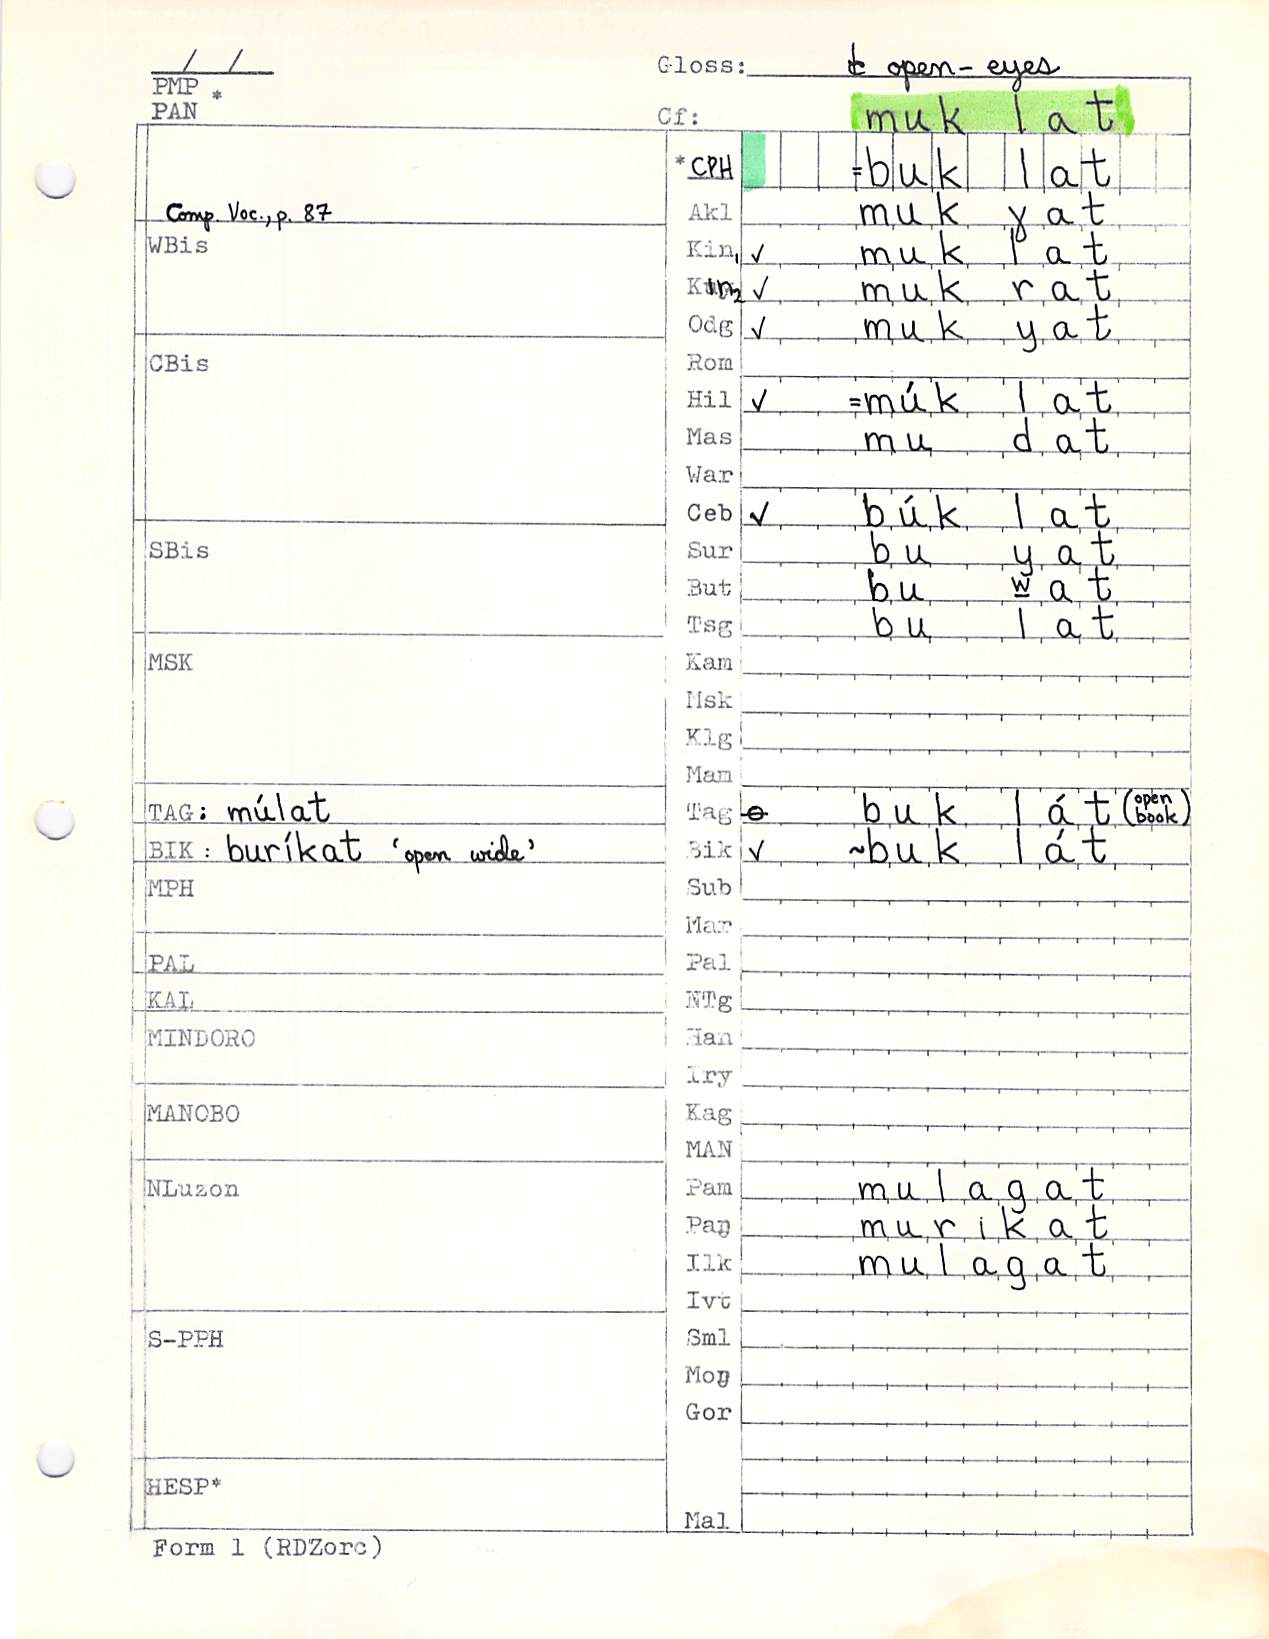 / /
PMP *
PAN
Gloss: open-eyes
Cf: muk lat
*CPH =buk lat
Comp. Voc., p. 87
Akl muk ɣat
WBis
Kin₁ ✓ muk lat
Kin₂ ✓ muk rat
Odg ✓ muk yat
CBis
Rom
Hil ✓ =múk lat
Mas mu dat
War
Ceb ✓ búk lat
SBis
Sur bu yat
But bu w̲at
Tsg bu lat
MSK
Kam
Msk
Klg
Mam
TAG: múlat
Tag buk lát (open book)
BIK: buríkat 'open wide'
Bik ✓ ~buk lát
MPH
Sub
Mar
PAL
Pal
KAL
NTg
MINDORO
Han
Iry
MANOBO
Kag
MAN
NLuzon
Pam mulagat
Pan murikat
Ilk mulagat
Ivt
S-PPH
Sml
Mon
Gor
HESP*
Mal
Form 1 (RDZorc)